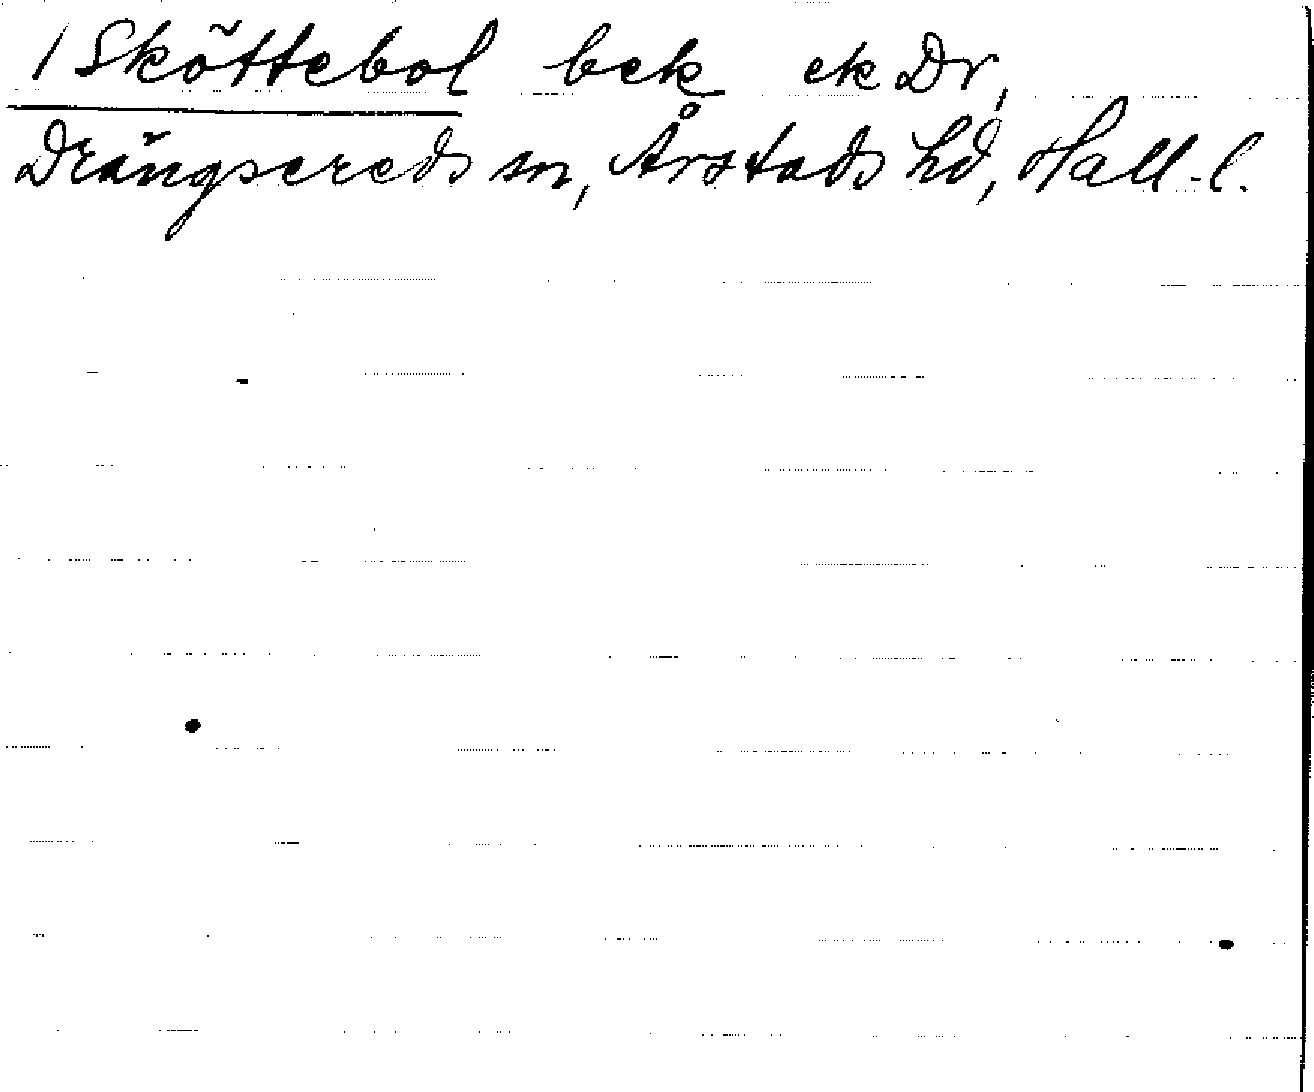 /Sköttebol bek ek Dr,
Drängsereds sn, Årstads hd, Hall. l.